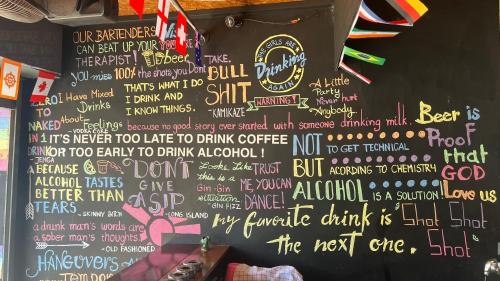 OUR BARTENDERS
CAN BEAT UP YOUR
THERAPIST!
you miss 100% the shots you Dont TAKE.
THAT'S WHAT I DO
I DRINK AND
I KNOW THINGS.
BULL
SHIT
"KAMIKAZE"
THE GIRLS ARE
Drinking
AGAIN
WARNING!!
A Little
Party
Never hurt
Anybody.
ZERO
TO
NAKED
I Have Mixed
Drinks
About
Feelings
- VODKA
because no good story ever started with someone drinking milk.
IT'S NEVER TOO LATE TO DRINK COFFEE
OR TOO EARLY TO DRINK ALCOHOL !
- JENGA
BECAUSE
ALCOHOL TASTES
BETTER THAN
TEARS.
- SKINNY BITCH
DON'T
GIVE
A SIP
- LONG ISLAND
Looks Like
this is a
Gin-Gin
situation
- GIN FIZZ
TRUST
ME, YOU CAN
DANCE!
NOT TO GET TECHNICAL
BUT ACORDING TO CHEMISTRY
ALCOHOL IS A SOLUTION!
Beer is
Proof
that
GOD
Love us
a drunk man's words are
a sober man's thoughts."
- OLD FASHIONED
my favorite drink is
the next one.
"Shot Shot
Shot"
HANGOVERS